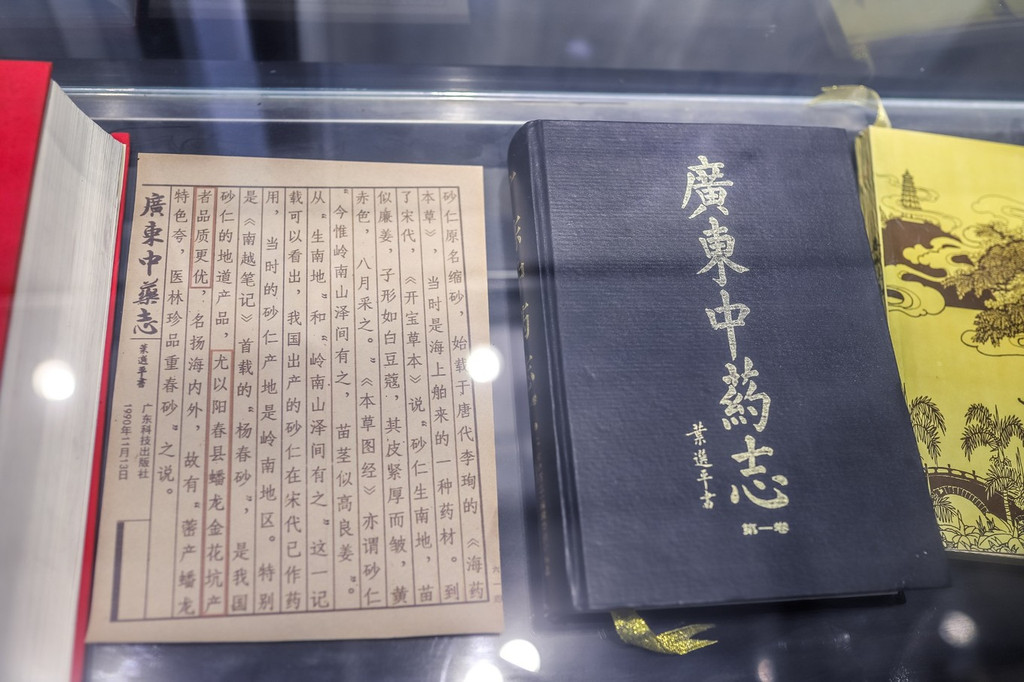 砂仁原名缩砂，始载于唐代李珣的《海药
本草》，当时是海上舶来的一种药材。到
了宋代，《开宝草本》说“砂仁生南地，苗
似廉姜，子形如白豆蔻，其皮紧厚而皱，黄
赤色，八月采之。”《本草图经》亦谓砂仁
“今惟岭南山泽间有之，苗茎似高良姜”。
从“生南地”和“岭南山泽间有之”这一记
载可以看出，我国出产的砂仁在宋代已作药
用，当时的砂仁产地是岭南地区。特别
是《南越笔记》首载的“杨春砂”，是我国
砂仁的地道产品，尤以阳春县蟠龙金花坑产
者品质更优，名扬海内外，故有“产蟠龙
特色夸，医林珍品重春砂”之说。
廣東中藥志
葉選平書
广东科技出版社
1990年11月13日
廣東中葯志
葉選平書
第一卷